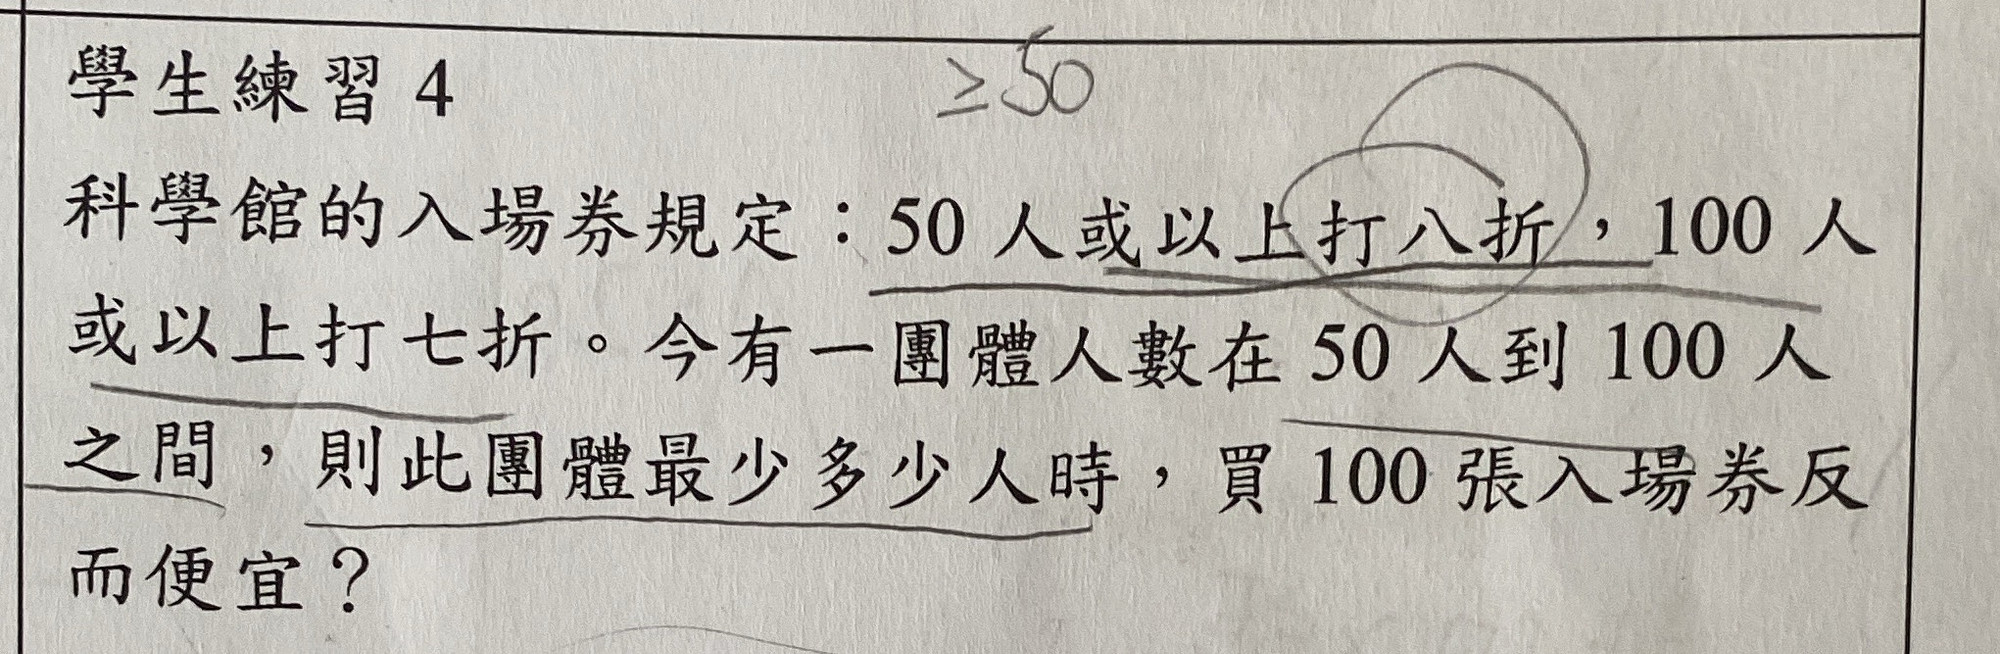 學生練習 4
≥50
科學館的入場券規定：50 人或以上打八折，100 人
或以上打七折。今有一團體人數在 50 人到 100 人
之間，則此團體最少多少人時，買 100 張入場券反
而便宜？